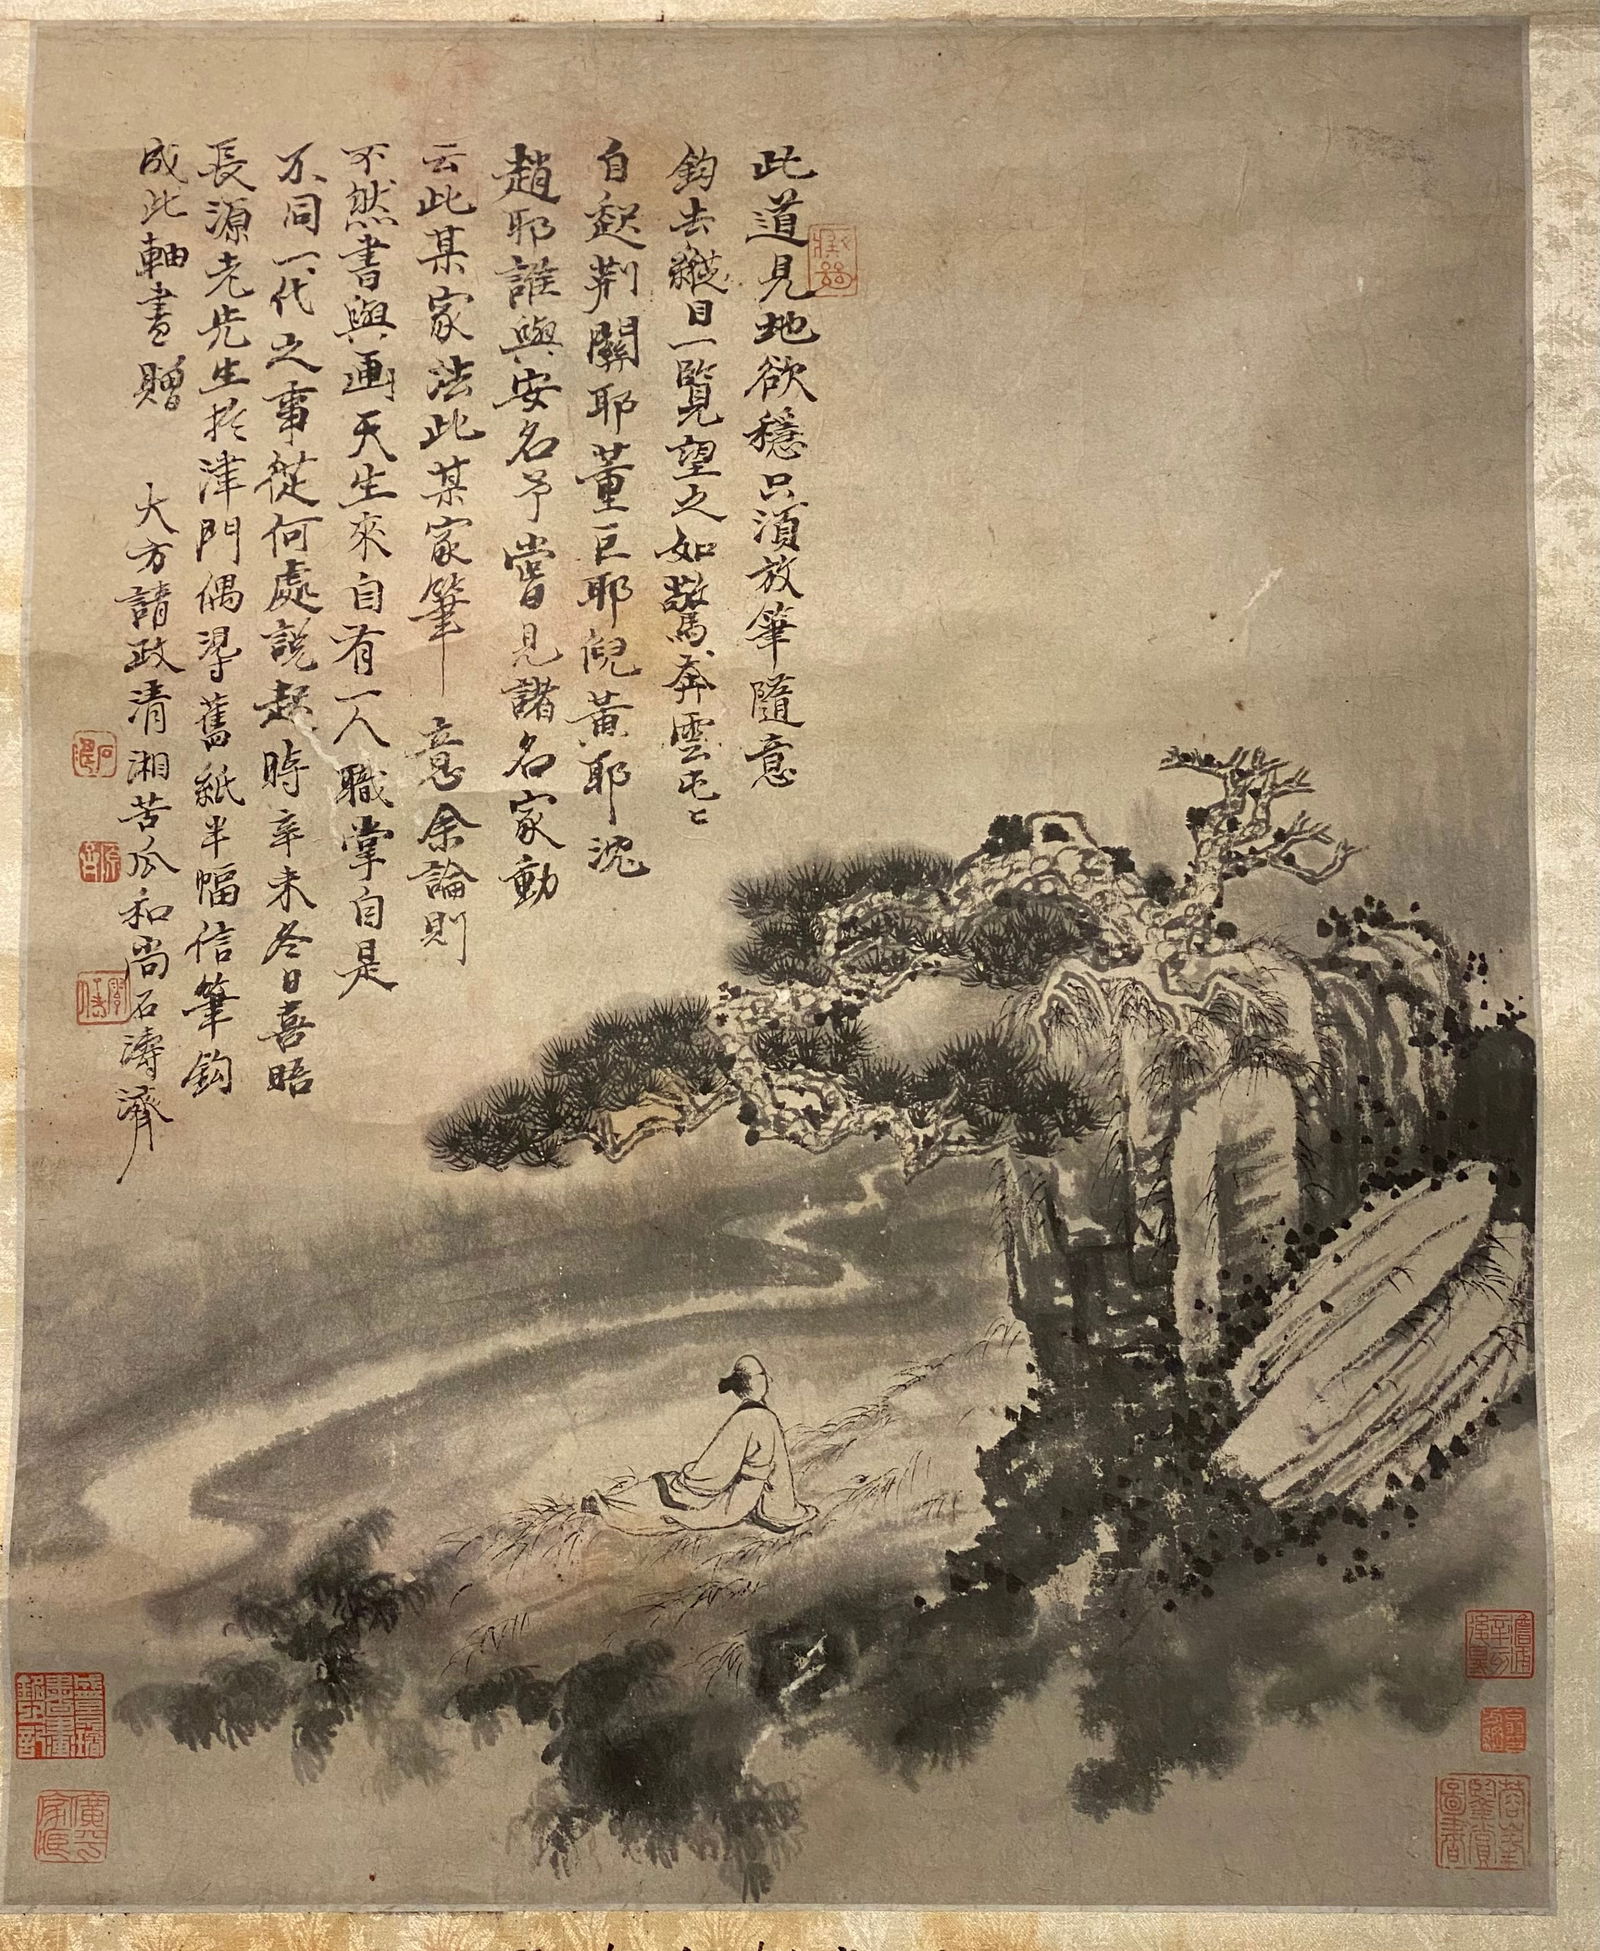 此道見地欲穩只須放筆隨意
鈎去縱目一覽望之如驚奔雲屯屯
自起荆關耶董巨耶倪黃耶沈
趙耶誰與安名予嘗見諸名家動
云此某家法此某家筆意余論則
不然書與画天生來自有一人職掌自是
不同一代之事從何處說起時辛未冬日喜晤
長源老先生於津門偶得舊紙半幅信筆鈎
成此軸畫贈大方請政清湘苦瓜和尚石濤濟